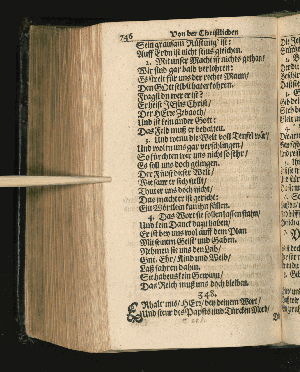 746 Von der Christlichen
Sein grausam Rüstung ist:
Auff Erdn ist nicht seins gleichen.
2. Mit unser Macht ist nichts gethan/
Wir sind gar bald verlohren:
Es streit für uns der rechte Mann/
Den GOtt selbst hat erkohren.
Fragst du wer er ist?
Er heist JEsus Christ/
Der HErr Zebaoth/
Und ist kein ander Gott:
Das Feld muß er behalten.
3. Und wenn die Welt voll Teufel wär/
Und wolln uns gar verschlingen/
So fürchten wir uns nicht so sehr/
Es soll uns doch gelingen.
Der Fürst dieser Welt/
Wie saur er sich stellt/
Thut er uns doch nicht/
Das macht er ist gericht:
Ein Wörtlein kan ihn fällen.
4. Das Wort sie sollen lassen stahn/
Und kein Danck dazu haben/
Er ist bey uns wol auff dem Plan
Mit seinem Geist und Gaben.
Nehmen sie uns den Leib/
Gut, Ehr/ Kind und Weib/
Laß fahren dahin.
Sie habens kein Gewinn/
Das Reich muß uns doch bleiben.
348.
ERhalt uns/ HErr/ bey deinem Wort/
Und steur des Papsts und Türcken Mord/